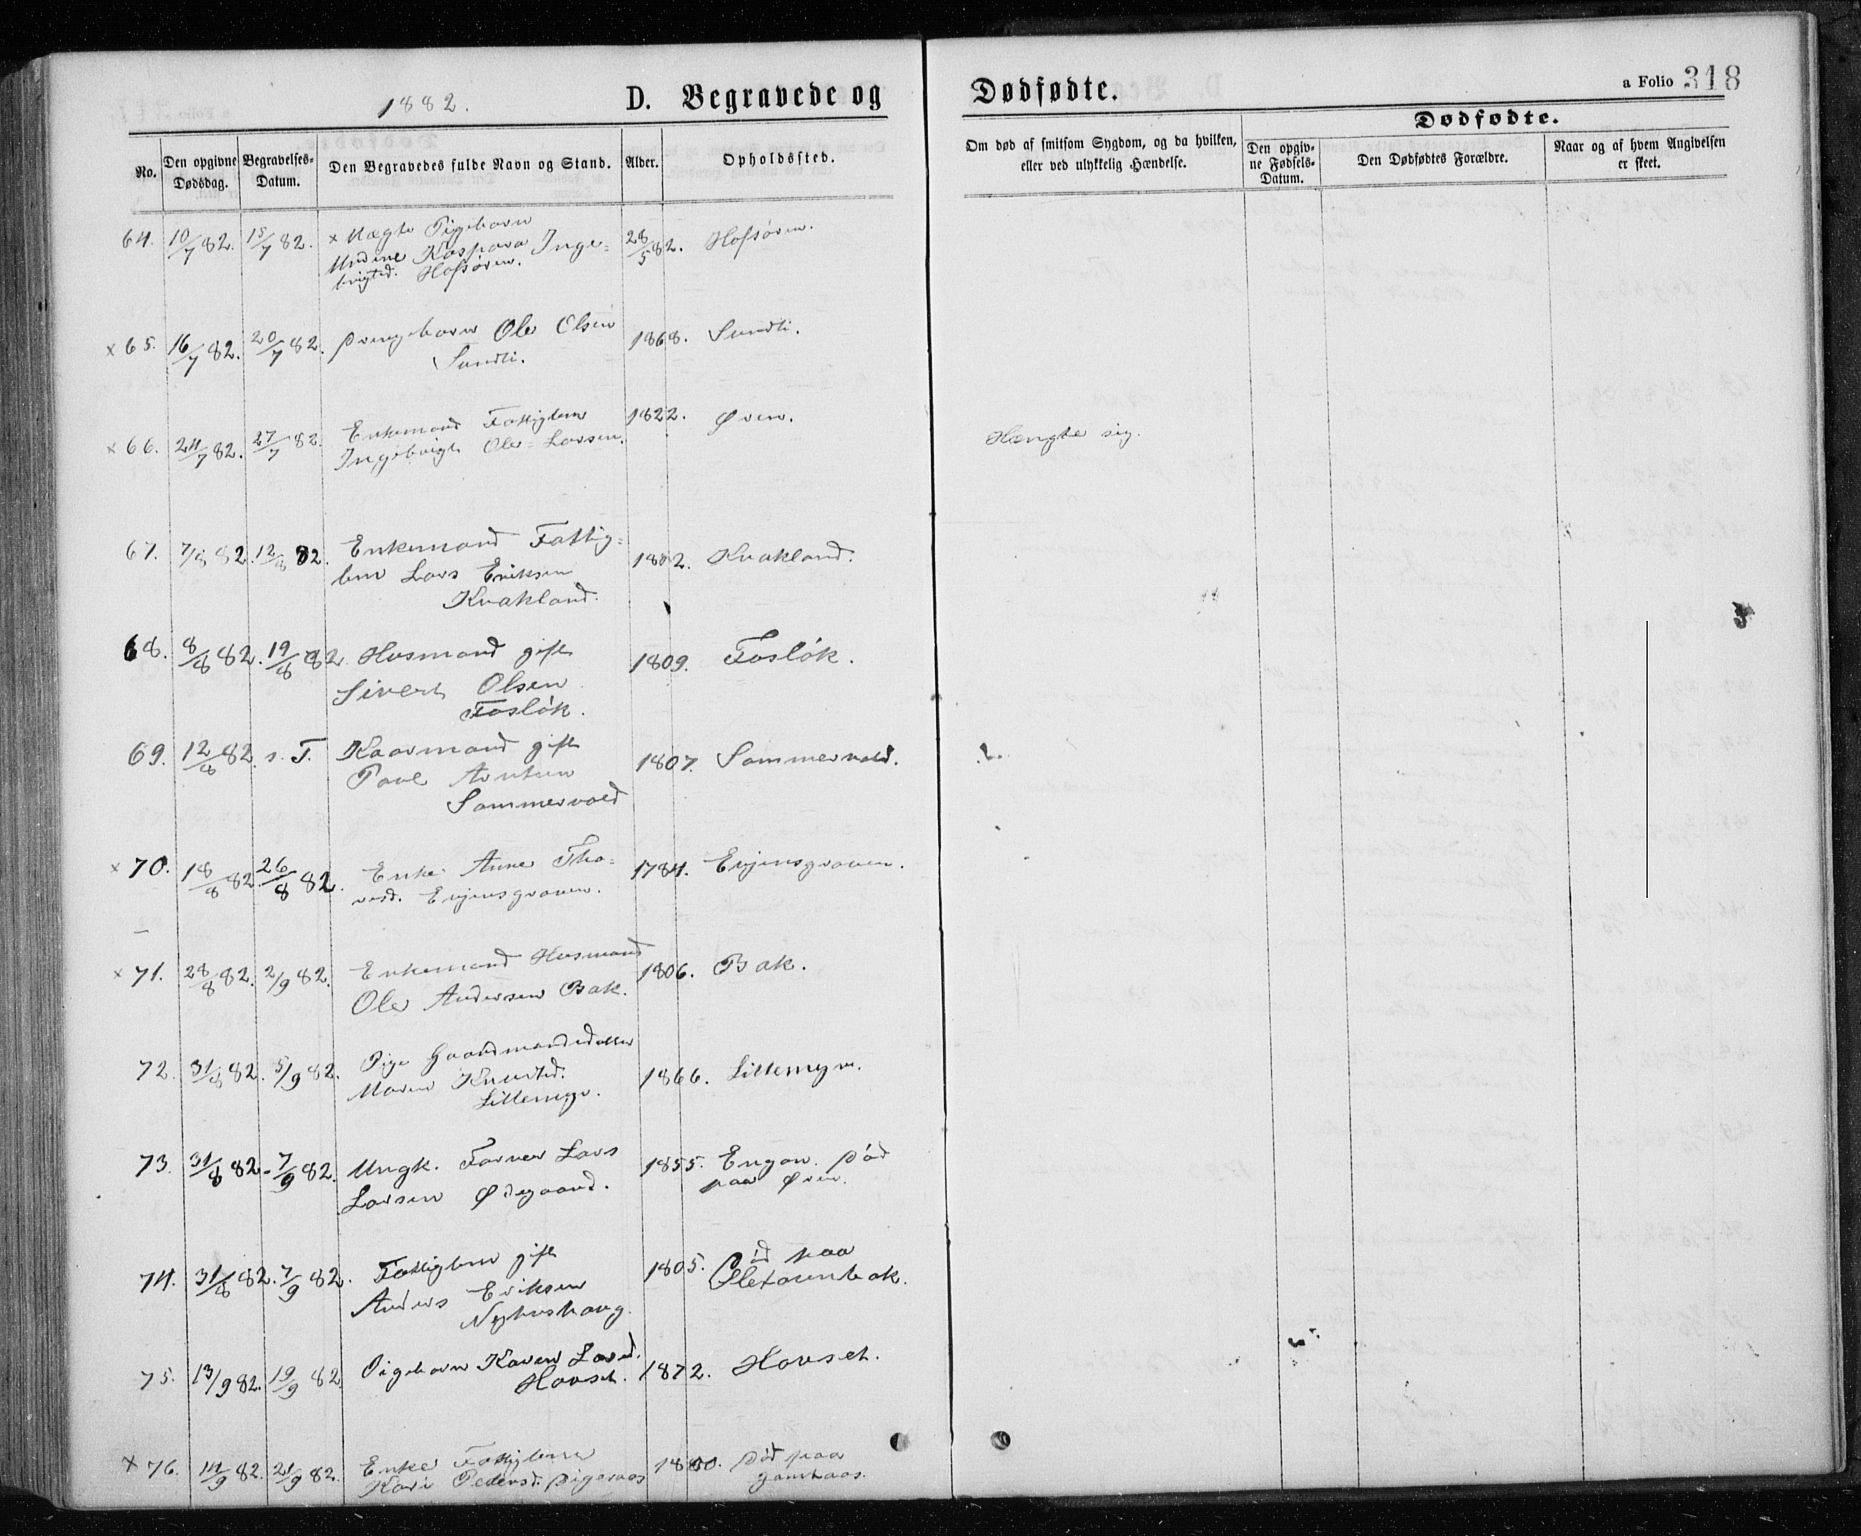 1882. D. Begravede og Dødfødte. a Folio 318
No. Den opgivne Dødsdag. Begravelses-Datum. Den Begravedes fulde Navn og Stand. Alder. Opholdssted. Om død af smitsom Sygdom, og da hvilken, eller ved ulykkelig Hændelse. Dødfødte.
Den opgivne Fødsels-Datum. Den Dødfødtes Forældre. Naar og af hvem Angivelsen er skeet.
64. 10/7 82. 15/7 82. x Uægte Pigebarn 28/5 82. Hofsøren.
Kaspara Inge=
brigtsd. Hofsøren.
x 65. 16/7 82. 20/7 82. Drengebarn Ole Olsen 1868. Sundli.
Sundli.
x 66. 24/7 82. 27/7 82. Enkemand Fattiglem 1822. Øren. Hængte sig.
Ingebrigt Ole= Larsen.
67. 7/8 82. 12/8 82. Enkemand Fattig= 1802. Kvakland.
lem Lars Eriksen
Kvakland.
68. 8/8 82. 19/8 82. Husmand gift 1809. Fosløk.
Sivert Olsen
Fosløk.
69. 12/8 82. s. T. Kaarmand gift 1807. Sommervold.
Paul Arntsen
Sommervold
x 70. 18/8 82. 26/8 82. Enke Anne Tho= 1784. Evjensgraven.
resd. Evjensgraven.
x 71. 28/8 82. 2/9 82. Enkemand Husmand 1806. Bak.
Ole Andersen Bak.
72. 31/8 82. 5/9 82. Pige Gaardmandsdatter 1866. Lillemyr.
Maren Knutsd.
Lillemyr.
73. 31/8 82. 7/9 82. Ungk. Farver Lars 1855. Engan. Død
Larsen Ødegaard. paa Øren.
74. 31/8 82. 7/9 82. Fattiglem gift 1805. Død paa
Anders Eriksen
Nyhushaug.
75. 13/9 82. 19/9 82. Pigebarn Karen Larsd. 1872. Hovset.
Hovset.
x 76. 14/9 82. 21/9 82. Enke Fattiglem 1800. Død paa
Kari Pedersd.